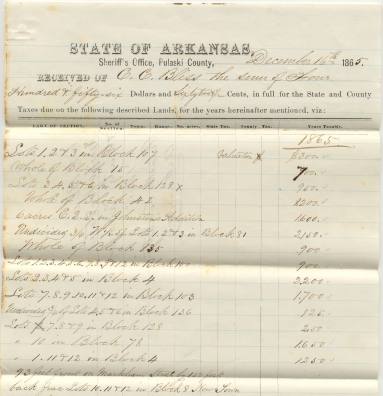 STATE OF ARKANSAS,
Sheriff's Office, Pulaski County, December 16th 1865.
RECEIVED OF C. C. Bliss the sum of Four
Hundred & fifty-six Dollars and Cents, in full for the State and County
Taxes due on the following described Lands, for the years hereinafter mentioned, viz:
PART OF SECTION. No. of Section. Town. Range. No. acres. State Tax. County Tax. Years Penalty.
1865
Lots 1, 2 & 3 in Block 107 Valuation 8200.
Whole of Block 15 700.
Lots 3, 4, 5 & 6 in Block 128 x 900.
Whole of Block 42 1200.
6 acres in Johnstons Addition 1600.
Undivided 3/6 Lots 1, 2 & 3 in Block 81 2150.
Whole of Block 135 900.
Lots 1, 2, 3, 4, 5, 6, 7, 8, 9 & 12 in Block 100 900.
Lots 2, 3, 4 & 5 in Block 4 3,200.
Lots 7, 8, 9, 10, 11 & 12 in Block 103 1,700.
Undivided Lots 4, 5 & 6 in Block 126 125.
Lots 7, 8 & 9 in Block 128 250
" 10 in Block 78 1,650
" 1. 11 & 12 in Block 4 1250.
93 feet front on Markham Street
back from Lots 10, 11 & 12 in Block 8 New Town